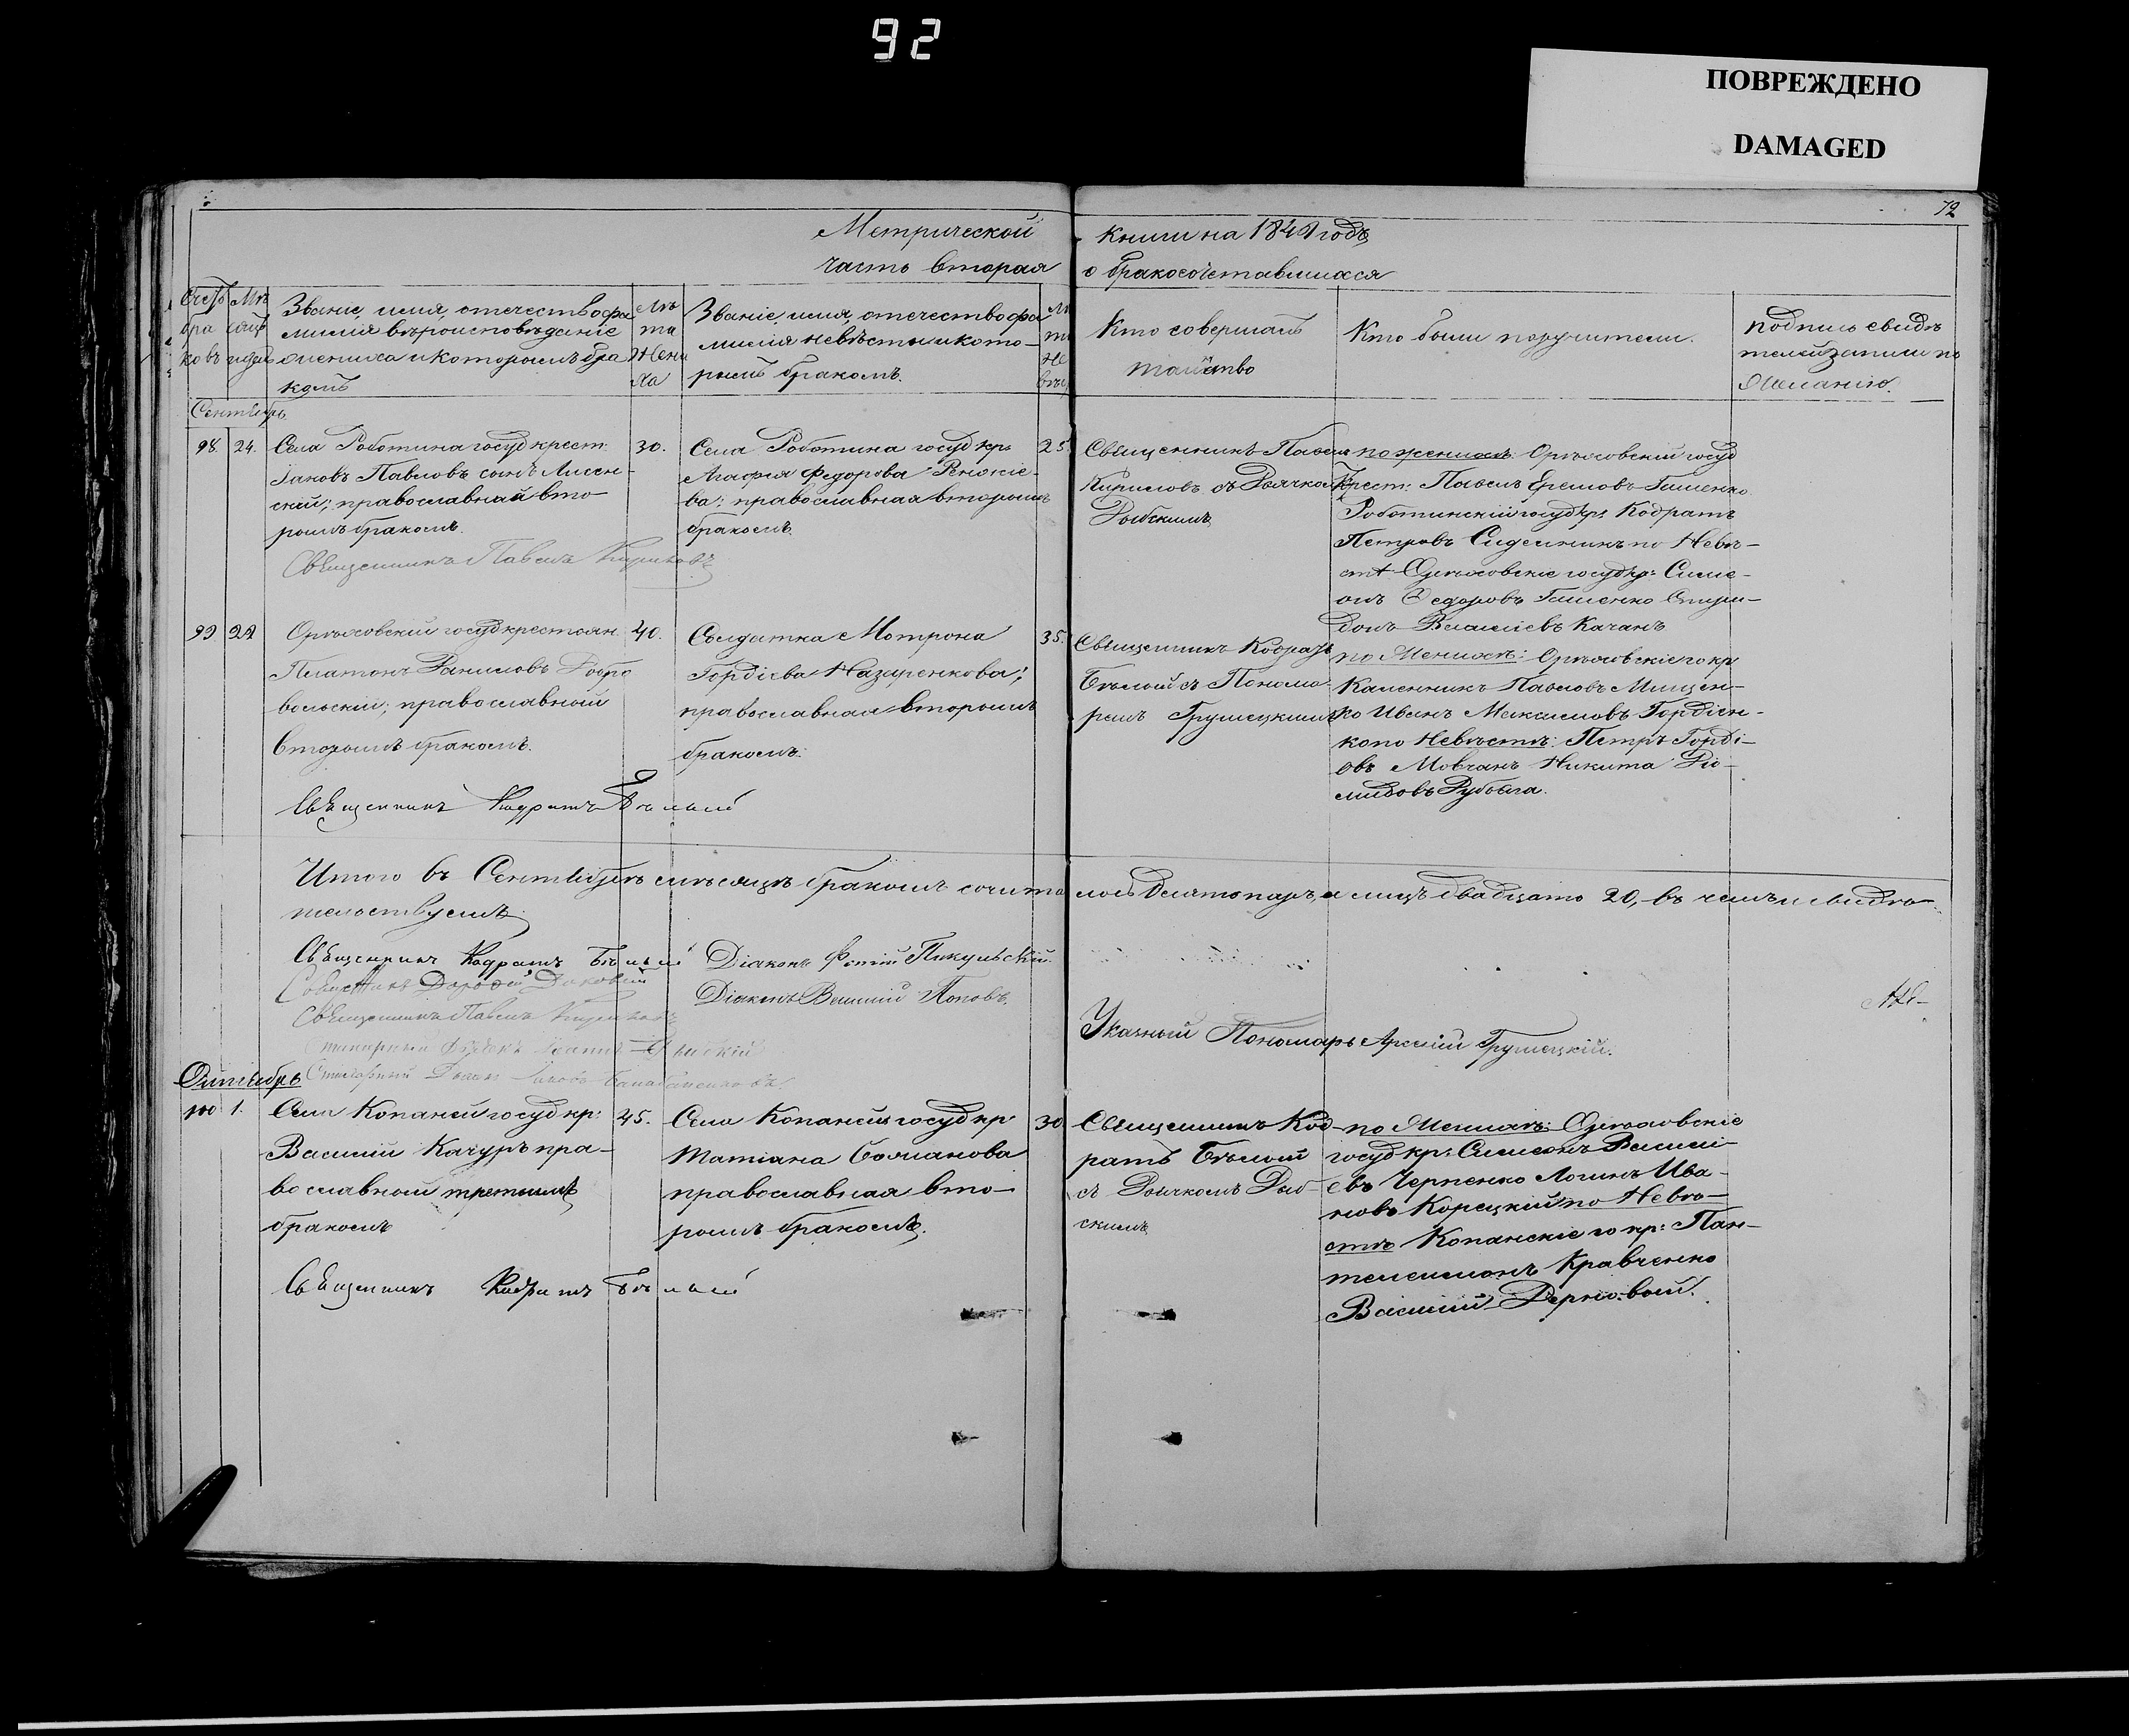 92
ПОВРЕЖДЕНО
DAMAGED
72
Метрической
книги на 184 годъ
часть вторая
о бракосочетавшихся
Счетъ браковъ
Мѣсяцъ и день
Званіе, имя, отечество фа
милія вѣроисповѣданіе
жениха и которымъ бра
комъ
Лѣ
та
жени
ха
Званіе, имя, отечество фа
милія невѣсты и кото-
рымъ бракомъ.
Лѣ
та
не
вѣс
Кто совершалъ
таинство
Кто были поручители.
подпись свидѣ
телей записи по
желанію.
Сентябрь
98. 24.
Села Работина госуд крест:
Іаковъ Павловъ сынъ Лисен-
скій; православнай вто-
рымъ бракомъ.
30.
Села Работина госуд кр:
Агафия Федорова
ва: православная вторымъ
бракомъ.
25.
Священникъ Павелъ
Кириловъ съ Дьячкомъ
Рыбскимъ
по женихѣ: Орѣховскій госуд
Крест: Павелъ Ереmовъ Гашенко
Работинскій госуд кр: Кодратъ
Петровъ по Невѣ-
стѣ Орѣховскіе госуд кр: Симе-
онъ Федоровъ Гашенко Спири-
донъ Василіевъ Качанъ
Священникъ Павелъ Кириловъ
99
Орѣховскій госуд крестьян.
Платонъ Даниловъ Добро
вольскій; православный
вторымъ бракомъ.
40.
Солдатка Мотрона
Гордіева Назаренкова;
православная вторымъ
бракомъ:
35.
Священникъ Кодратъ
Бѣлый съ Понома
ремъ Грушецкимъ
по Женихѣ: Орѣховскіе го кр
Павловъ Мищен-
ко Иванъ Максимовъ Гордіен-
ко по Невѣстѣ: Петръ Горді-
овъ Мовчанъ Никита Діо-
мидовъ
Священникъ Кодратъ Бѣлый
Итого въ Сентябрѣ мѣсяцѣ бракомъ сочеталось десять паръ, а лицъ двадцать 20, въ чемъ и свидѣ-
тельствуемъ
Священникъ Кодратъ Бѣлый
Діаконъ Фотій Пикульскій.
Діаконъ Василій Поповъ.
Священникъ Павелъ Кириловъ
Указный Пономарь Арсеній Грушецкій.
Октябрь
100 1.
Села Копаней госуд кр:
Василій Качуръ пра-
вославный третьимъ
бракомъ
45.
Села Копаней госуд кр
Татіана
православная вто-
рымъ бракомъ.
30
Священникъ Код-
ратъ Бѣлый
съ Дьячкомъ Рыб-
скимъ
по Женихѣ: Орѣховскіе
госуд кр: Симеонъ Васили-
евъ Черненко Логинъ Ива-
новъ Корецкій по Невѣ-
стѣ Копанскіе го кр: Пан-
телеимонъ Кравченко
Василій
Священникъ Кодратъ Бѣлый